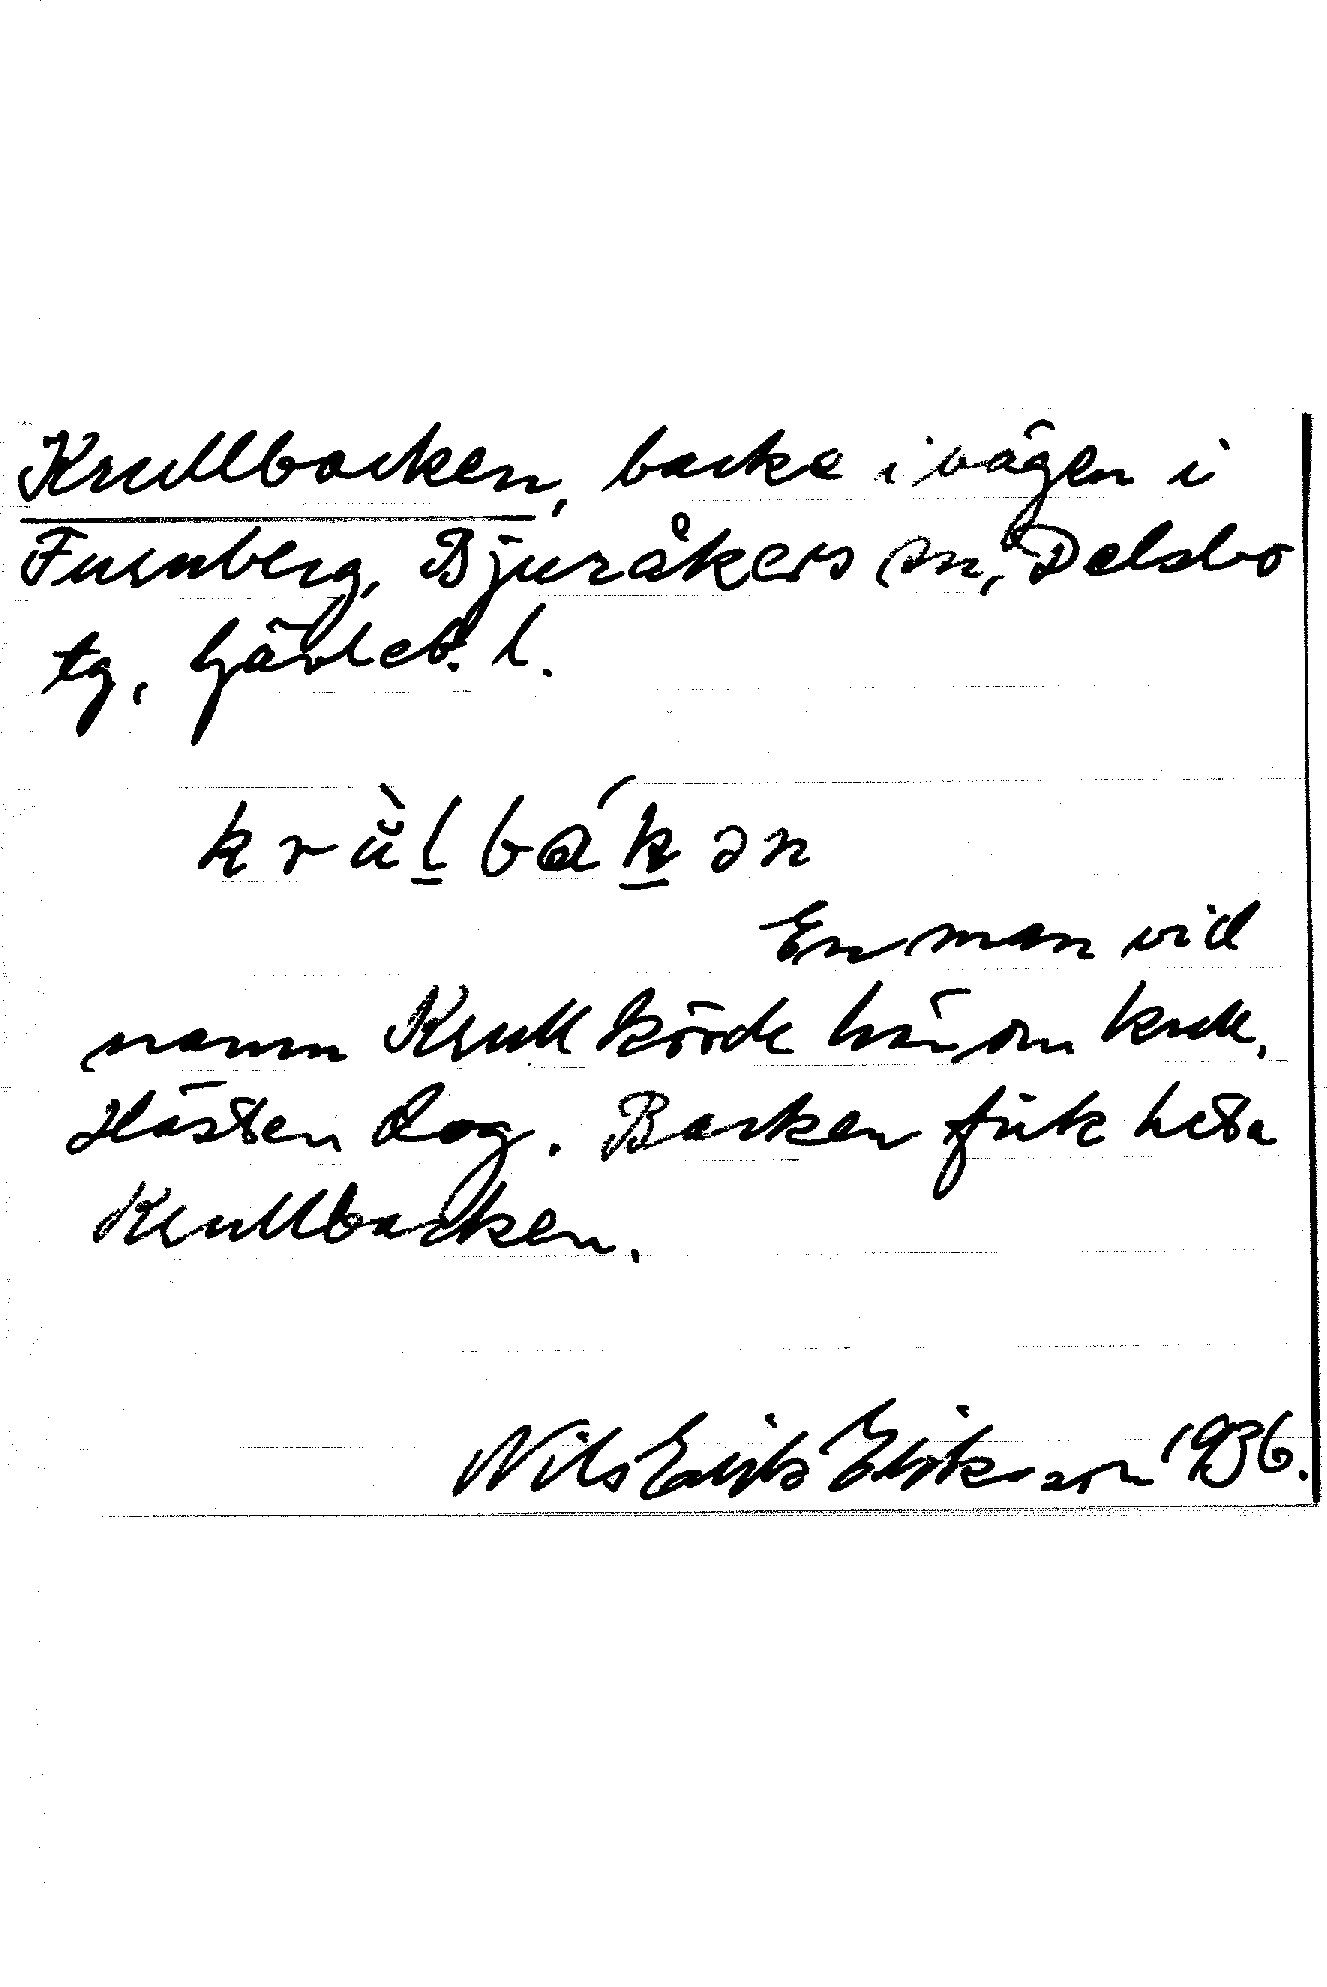 Krullbacken, backe i vägen i
Furuberg, Bjuråkers sn, Delsbo
tg, Gävleb. l.
krùl̠bák̠ən
En man vid
namn Krull körde här om kull.
Hästen dog. Backen fick heta
Krullbacken.
Nils Erik Eriksson 1936.